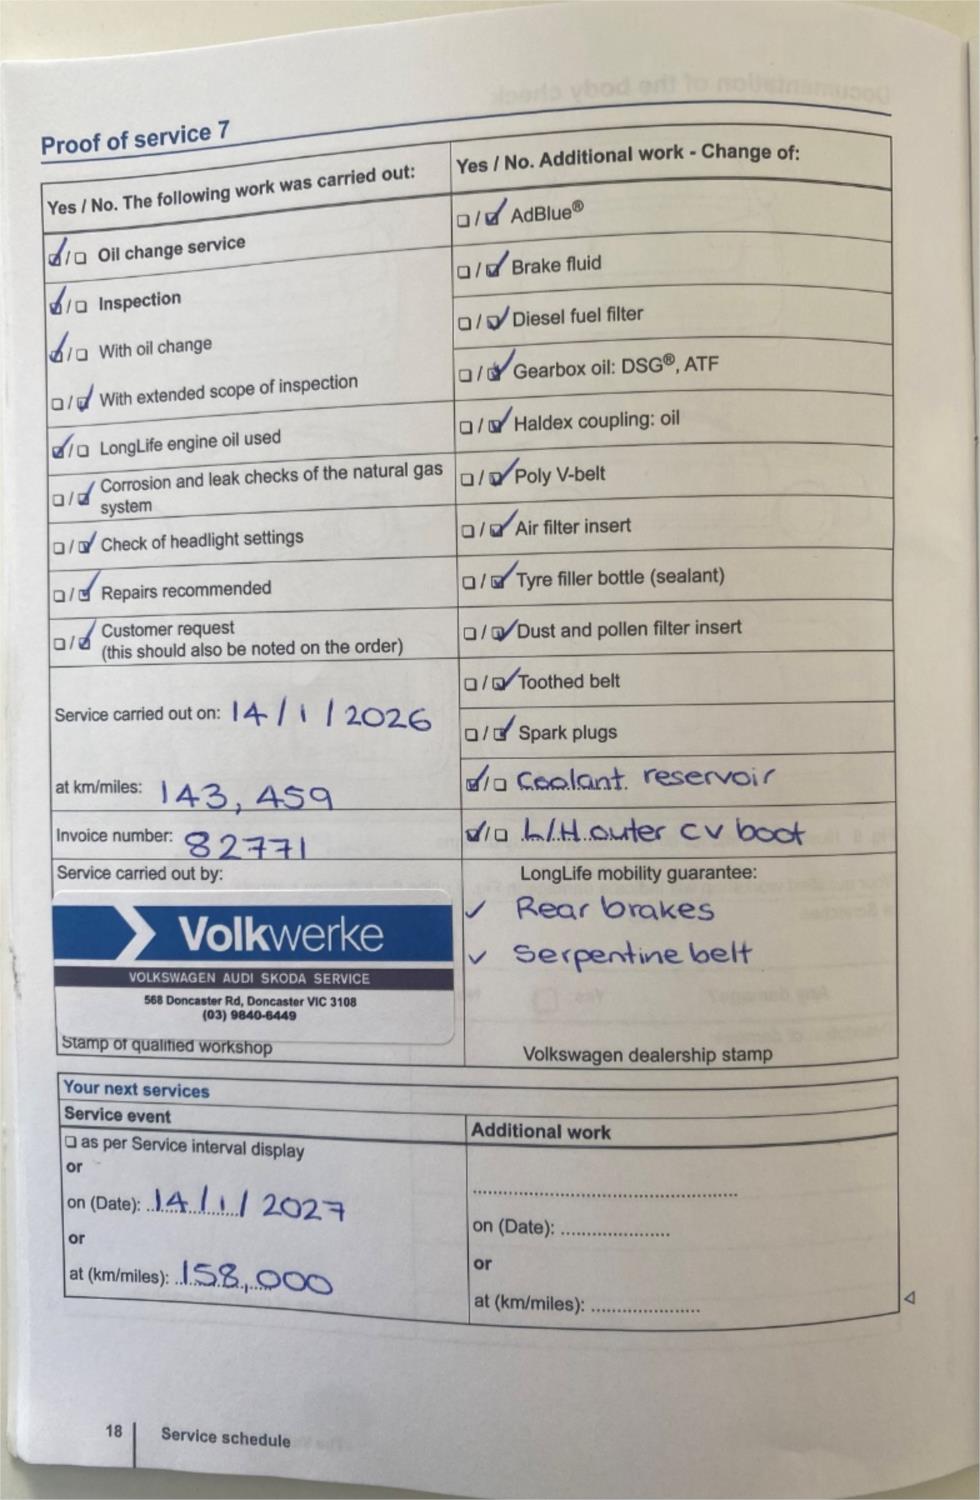 Proof of service 7
Yes / No. The following work was carried out:
☑/☐ Oil change service
☑/☐ Inspection
☑/☐ With oil change
☐/☑ With extended scope of inspection
☑/☐ LongLife engine oil used
☐/☑ Corrosion and leak checks of the natural gas
system
☐/☑ Check of headlight settings
☐/☑ Repairs recommended
☐/☑ Customer request
(this should also be noted on the order)
Service carried out on: 14/1/2026
at km/miles: 143,459
Invoice number: 82771
Service carried out by:
Volkwerke
VOLKSWAGEN AUDI SKODA SERVICE
568 Doncaster Rd, Doncaster VIC 3108
(03) 9840-6449
Stamp of qualified workshop
Yes / No. Additional work - Change of:
☐/☑ AdBlue®
☐/☑ Brake fluid
☐/☑ Diesel fuel filter
☐/☑ Gearbox oil: DSG®, ATF
☐/☑ Haldex coupling: oil
☐/☑ Poly V-belt
☐/☑ Air filter insert
☐/☑ Tyre filler bottle (sealant)
☐/☑ Dust and pollen filter insert
☐/☑ Toothed belt
☐/☑ Spark plugs
☑/☐ Coolant reservoir
☑/☐ L/H outer cv boot
LongLife mobility guarantee:
✓ Rear brakes
✓ Serpentine belt
Volkswagen dealership stamp
Your next services
Service event
☐ as per Service interval display
or
on (Date): 14/1/2027
or
at (km/miles): 158,000
Additional work
on (Date): ......................
or
at (km/miles): ......................
18 Service schedule